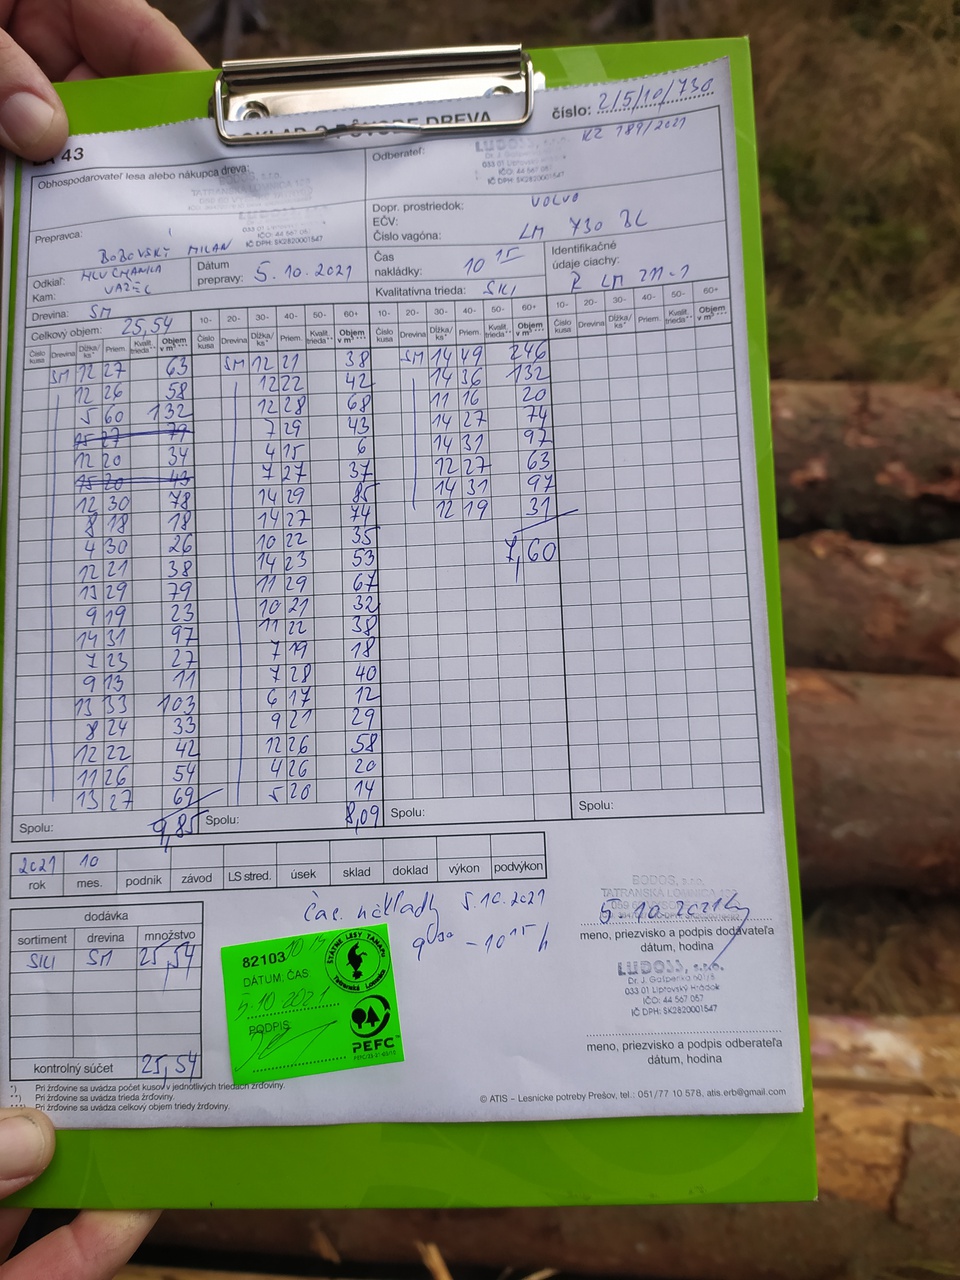 číslo: 2/5/10/730
KZ 789/2021
DOKLAD O PÔVODE DREVA
43
Obhospodarovateľ lesa alebo nákupca dreva:
BODOS, s.r.o.
TATRANSKÁ LOMNICA
Odberateľ:
LUDOSS, s.r.o.
033 01 Liptovský Hrádok
IČO: 44 567 057
IČ DPH: SK2820001547
Prepravca:
BOBOVSKÝ MILAN
LUDOSS, s.r.o.
IČO: 44 567 057
IČ DPH: SK2820001547
Dopr. prostriedok: VOLVO
EČV:
Číslo vagóna: LM 730 BL
Odkiaľ:
Kam: VAŽEC
Dátum
prepravy: 5.10.2021
Čas
nakládky: 10 15
Identifikačné
údaje ciachy:
Kvalitatívna trieda:
Drevina: SM
Celkový objem: 25,54
10- 20- 30- 40- 50- 60+ 10- 20- 30- 40- 50- 60+ 10- 20- 30- 40- 50- 60+
Číslo kusa Drevina Dĺžka/ks* Priem. Kvalit. trieda** Objem v m³ *** Číslo kusa Drevina Dĺžka/ks* Priem. Kvalit. trieda** Objem v m³ *** Číslo kusa Drevina Dĺžka/ks* Priem. Kvalit. trieda** Objem v m³ *** Číslo kusa Drevina Dĺžka/ks* Priem. Kvalit. trieda** Objem v m³ ***
SM 12 27 63 SM 12 21 38 SM 14 49 246
12 26 58 12 22 42 14 36 132
5 60 132 12 28 68 11 16 20
15 27 79 7 29 43 14 27 74
12 20 34 4 15 6 14 31 97
15 20 43 7 27 37 12 27 63
12 30 78 14 29 85 14 31 97
8 18 18 14 27 74 12 19 31
4 30 26 10 22 35 7,60
12 21 38 14 23 53
13 29 79 11 29 67
9 19 23 10 21 32
14 31 97 11 22 38
7 23 27 7 19 18
9 13 11 7 28 40
13 33 103 6 17 12
8 24 33 9 21 29
12 22 42 12 26 58
11 26 54 4 26 20
13 27 69 5 20 14
Spolu: 9,85 Spolu: 8,09 Spolu: Spolu:
2021 10
rok mes. podnik závod LS stred. úsek sklad doklad výkon podvýkon
Čas nákladky 5.10.2021
9 00 - 10 15 h
dodávka
sortiment drevina množstvo
SM 25,54
kontrolný súčet 25,54
82103
DÁTUM, ČAS
5.10.2021
PODPIS
ŠTÁTNE LESY TANAPU
Tatranská Lomnica
PEFC
BODOS, s.r.o.
TATRANSKÁ LOMNICA
5.10.2021
meno, priezvisko a podpis dodávateľa
dátum, hodina
LUDOSS, s.r.o.
Dr. J. Gašperíka 601/8
033 01 Liptovský Hrádok
IČO: 44 567 057
IČ DPH: SK2820001547
meno, priezvisko a podpis odberateľa
dátum, hodina
*) Pri žrďovine sa uvádza počet kusov v jednotlivých triedach žrďoviny.
**) Pri žrďovine sa uvádza trieda žrďoviny.
***) Pri žrďovine sa uvádza celkový objem triedy žrďoviny.
© ATIS – Lesnícke potreby Prešov, tel.: 051/77 10 578, atis.erb@gmail.com